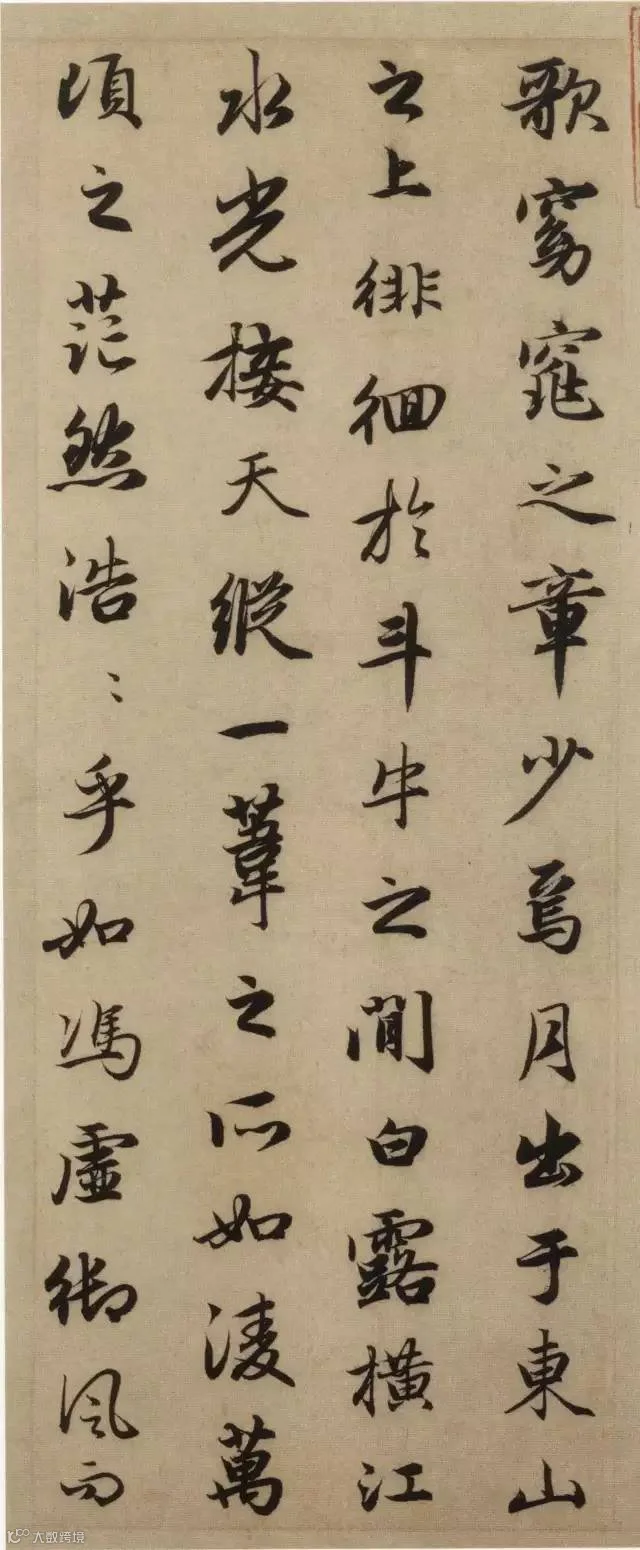 歌窈窕之章少焉月出于東山
之上徘徊於斗牛之間白露橫江
水光接天縱一葦之所如淩萬
頃之茫然浩〻乎如馮虛御風而
大数跨境